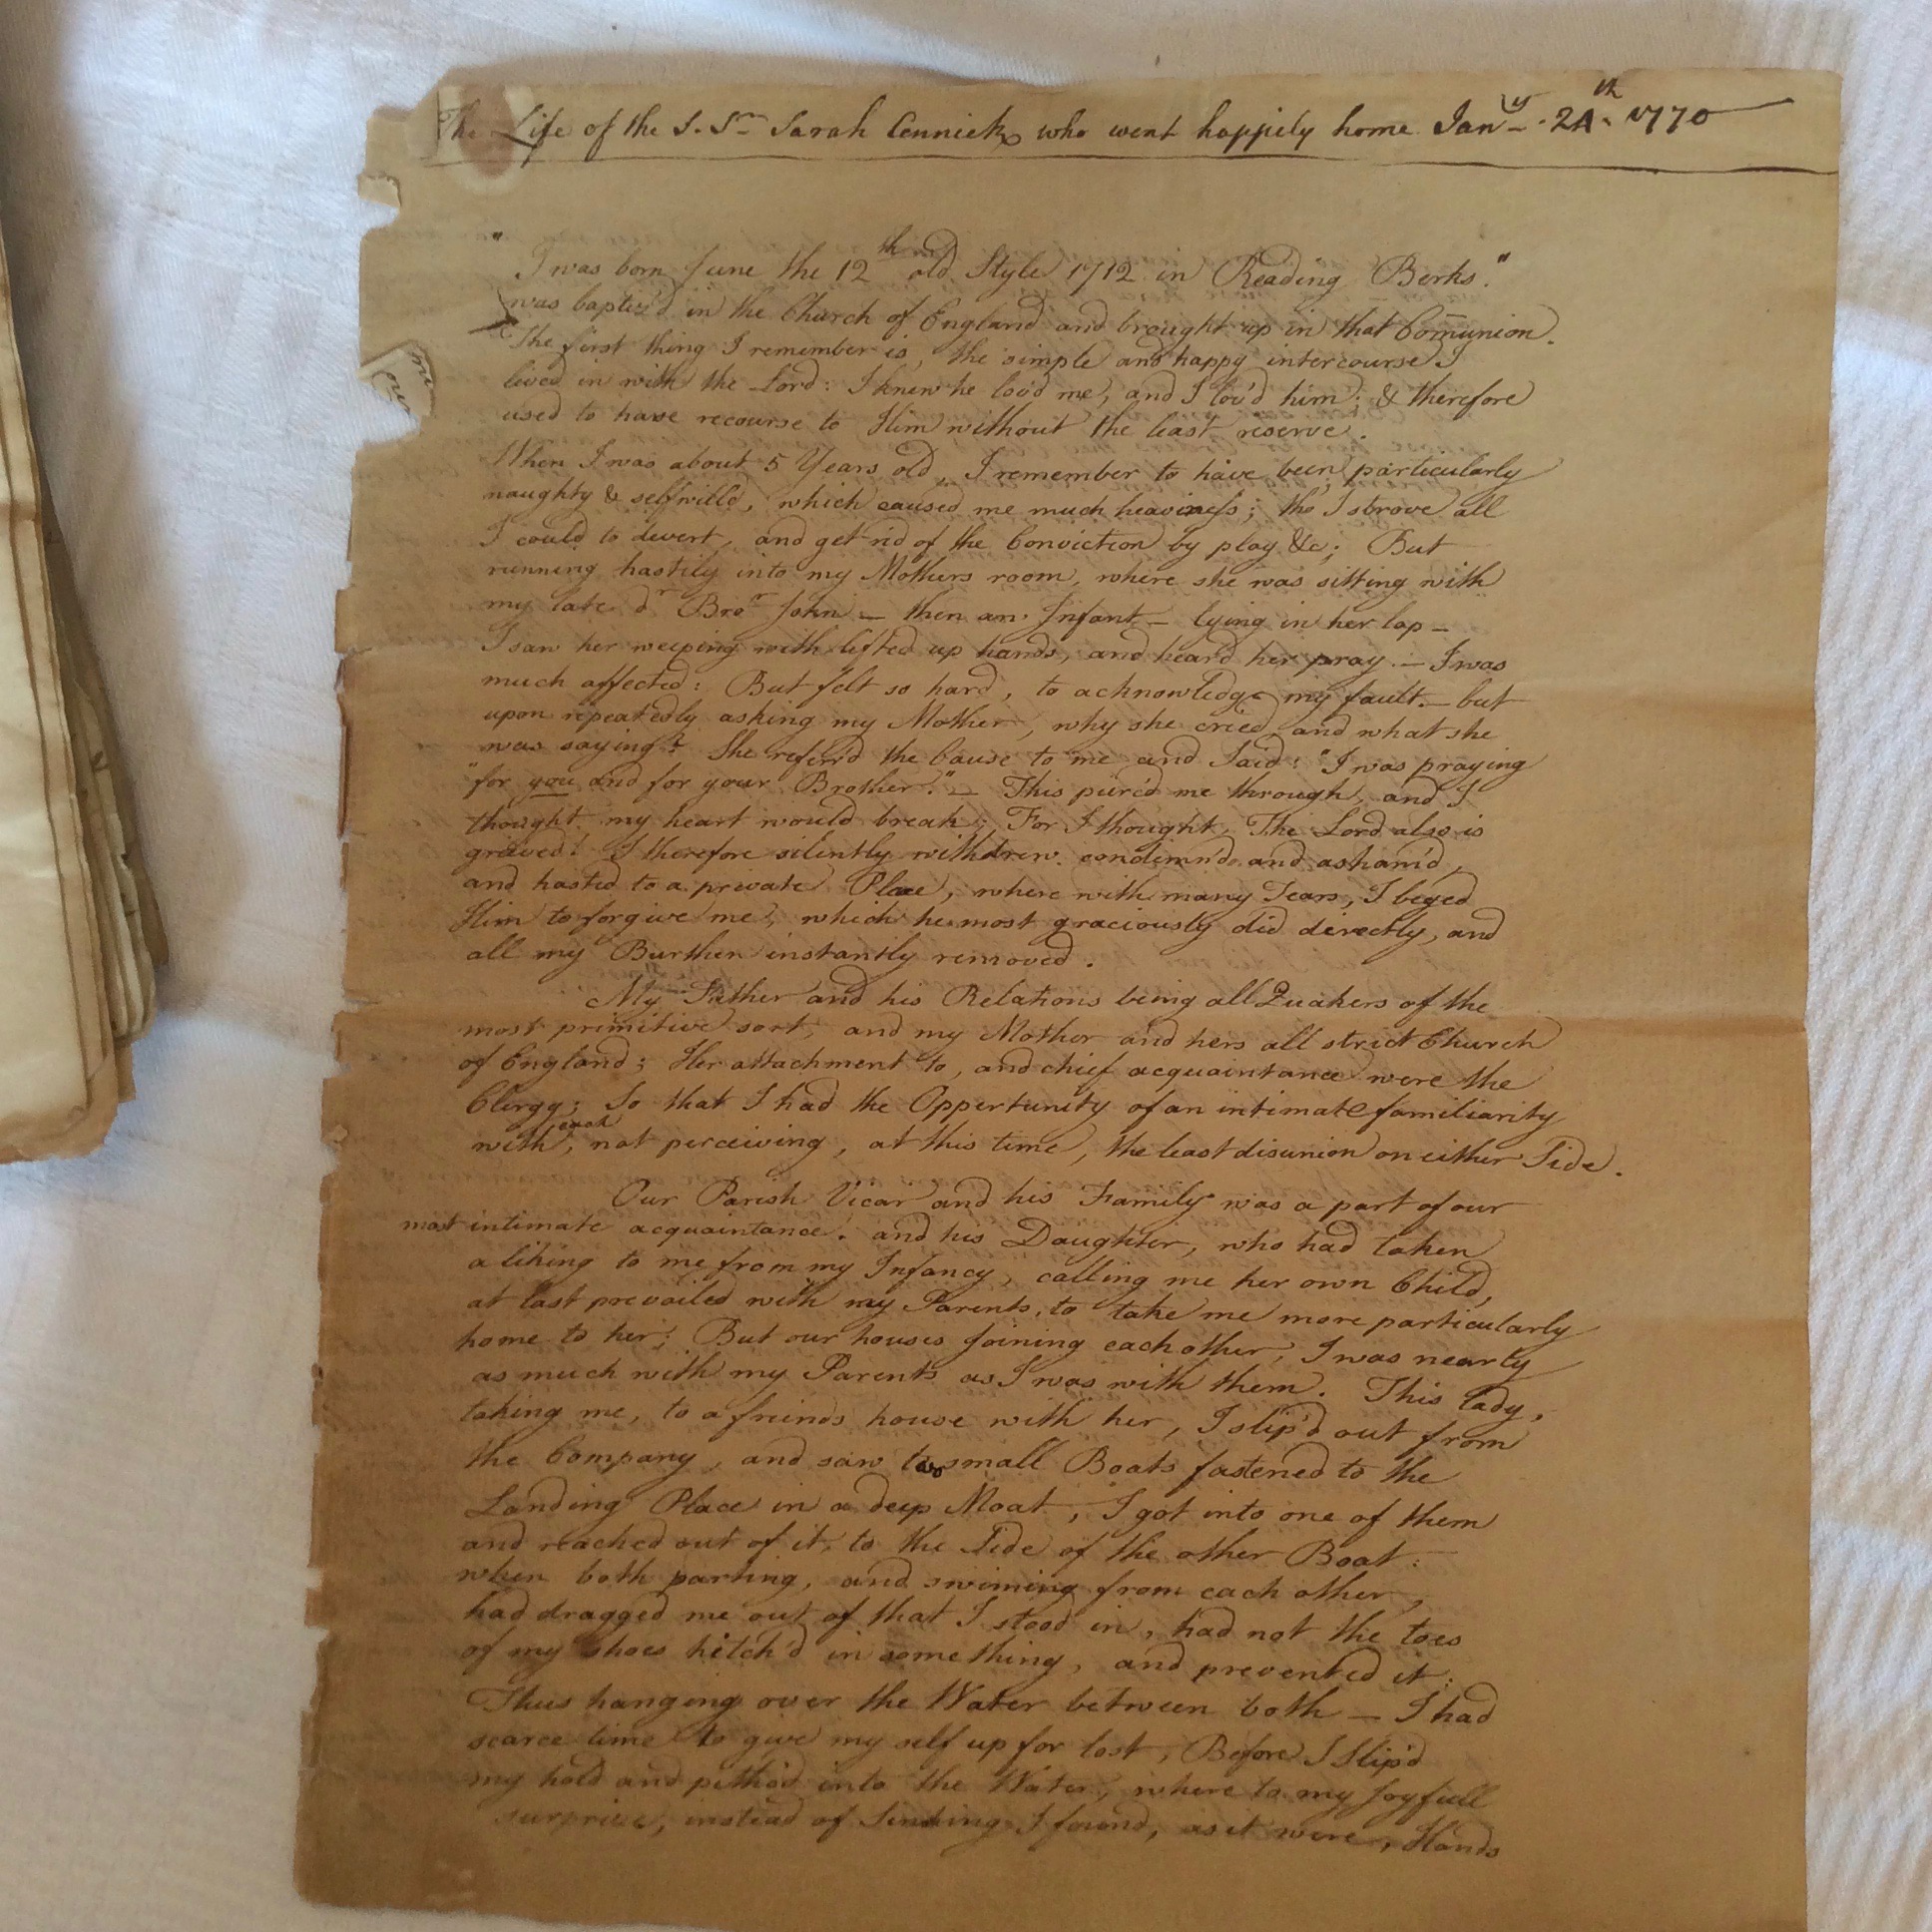 The Life of the S. Sr. Sarah Cennick, who went happily home Jany. 24th. 1770
"I was born June the 12th old Style 1712 in Reading Berks."
was baptiz'd in the Church of England and brought up in that Com̄union.
The first thing I remember is, the simple and happy intercourse I
lived in with the Lord: I knew he lov'd me, and I lov'd him: & therefore
used to have recourse to Him without the least reserve.
When I was about 5 Years old, I remember to have been particularly
naughty & selfwilld, which caused me much heaviness; tho' I strove all
I could to divert, and get rid of the Conviction by play &c; But
running hastily into my Mothers room, where she was sitting with
my late dr Bror John — then an Infant — lying in her lap —
I saw her weeping with lifted up hands, and heard her pray. — I was
much affected: But felt so hard, to acknowledge my fault. — but
upon repeatedly asking my Mother, why she cried, and what she
was saying? She referr'd the Cause to me and Said: "I was praying
"for you and for your Brother." — This pierc'd me through, and I
thought my heart would break; For I thought, The Lord also is
greived! I therefore silently withdrew. condemn'd and asham'd,
and hasted to a private Place, where with many Tears, I beged
Him to forgive me, which he most graciously did directly, and
all my Burthen instantly removed.
My Father and his Relations being all Quakers of the
most primitive sort, and my Mother and hers all strict Church
of England; Her attachment to, and chief acquaintance were the
Clergy; So that I had the Oppertunity of an intimate familiarity
with each, not perceiving, at this time, the least disunion on either Side.
Our Parish Vicar and his Family was a part of our
most intimate acquaintance. and his Daughter, who had taken
a liking to me from my Infancy, calling me her own Child,
at last prevailed with my Parents, to take me more particularly
home to her; But our houses joining each other, I was nearly
as much with my Parents as I was with them. This lady,
taking me, to a friends house with her, I slip'd out from
the Company, and saw two small Boats fastened to the
Landing Place in a deep Moat, I got into one of them
and reached out of it, to the Side of the other Boat:
when both parting, and swiming from each other,
had dragged me out of that I stood in, had not the toes
of my shoes hitch'd in something, and prevented it:
Thus hanging over the Water between both — I had
scarce time to give my self up for lost, Before I Slip'd
my hold and pitch'd into the Water, where to my Joyfull
surprise, instead of Sinking I found, as it were, Hands